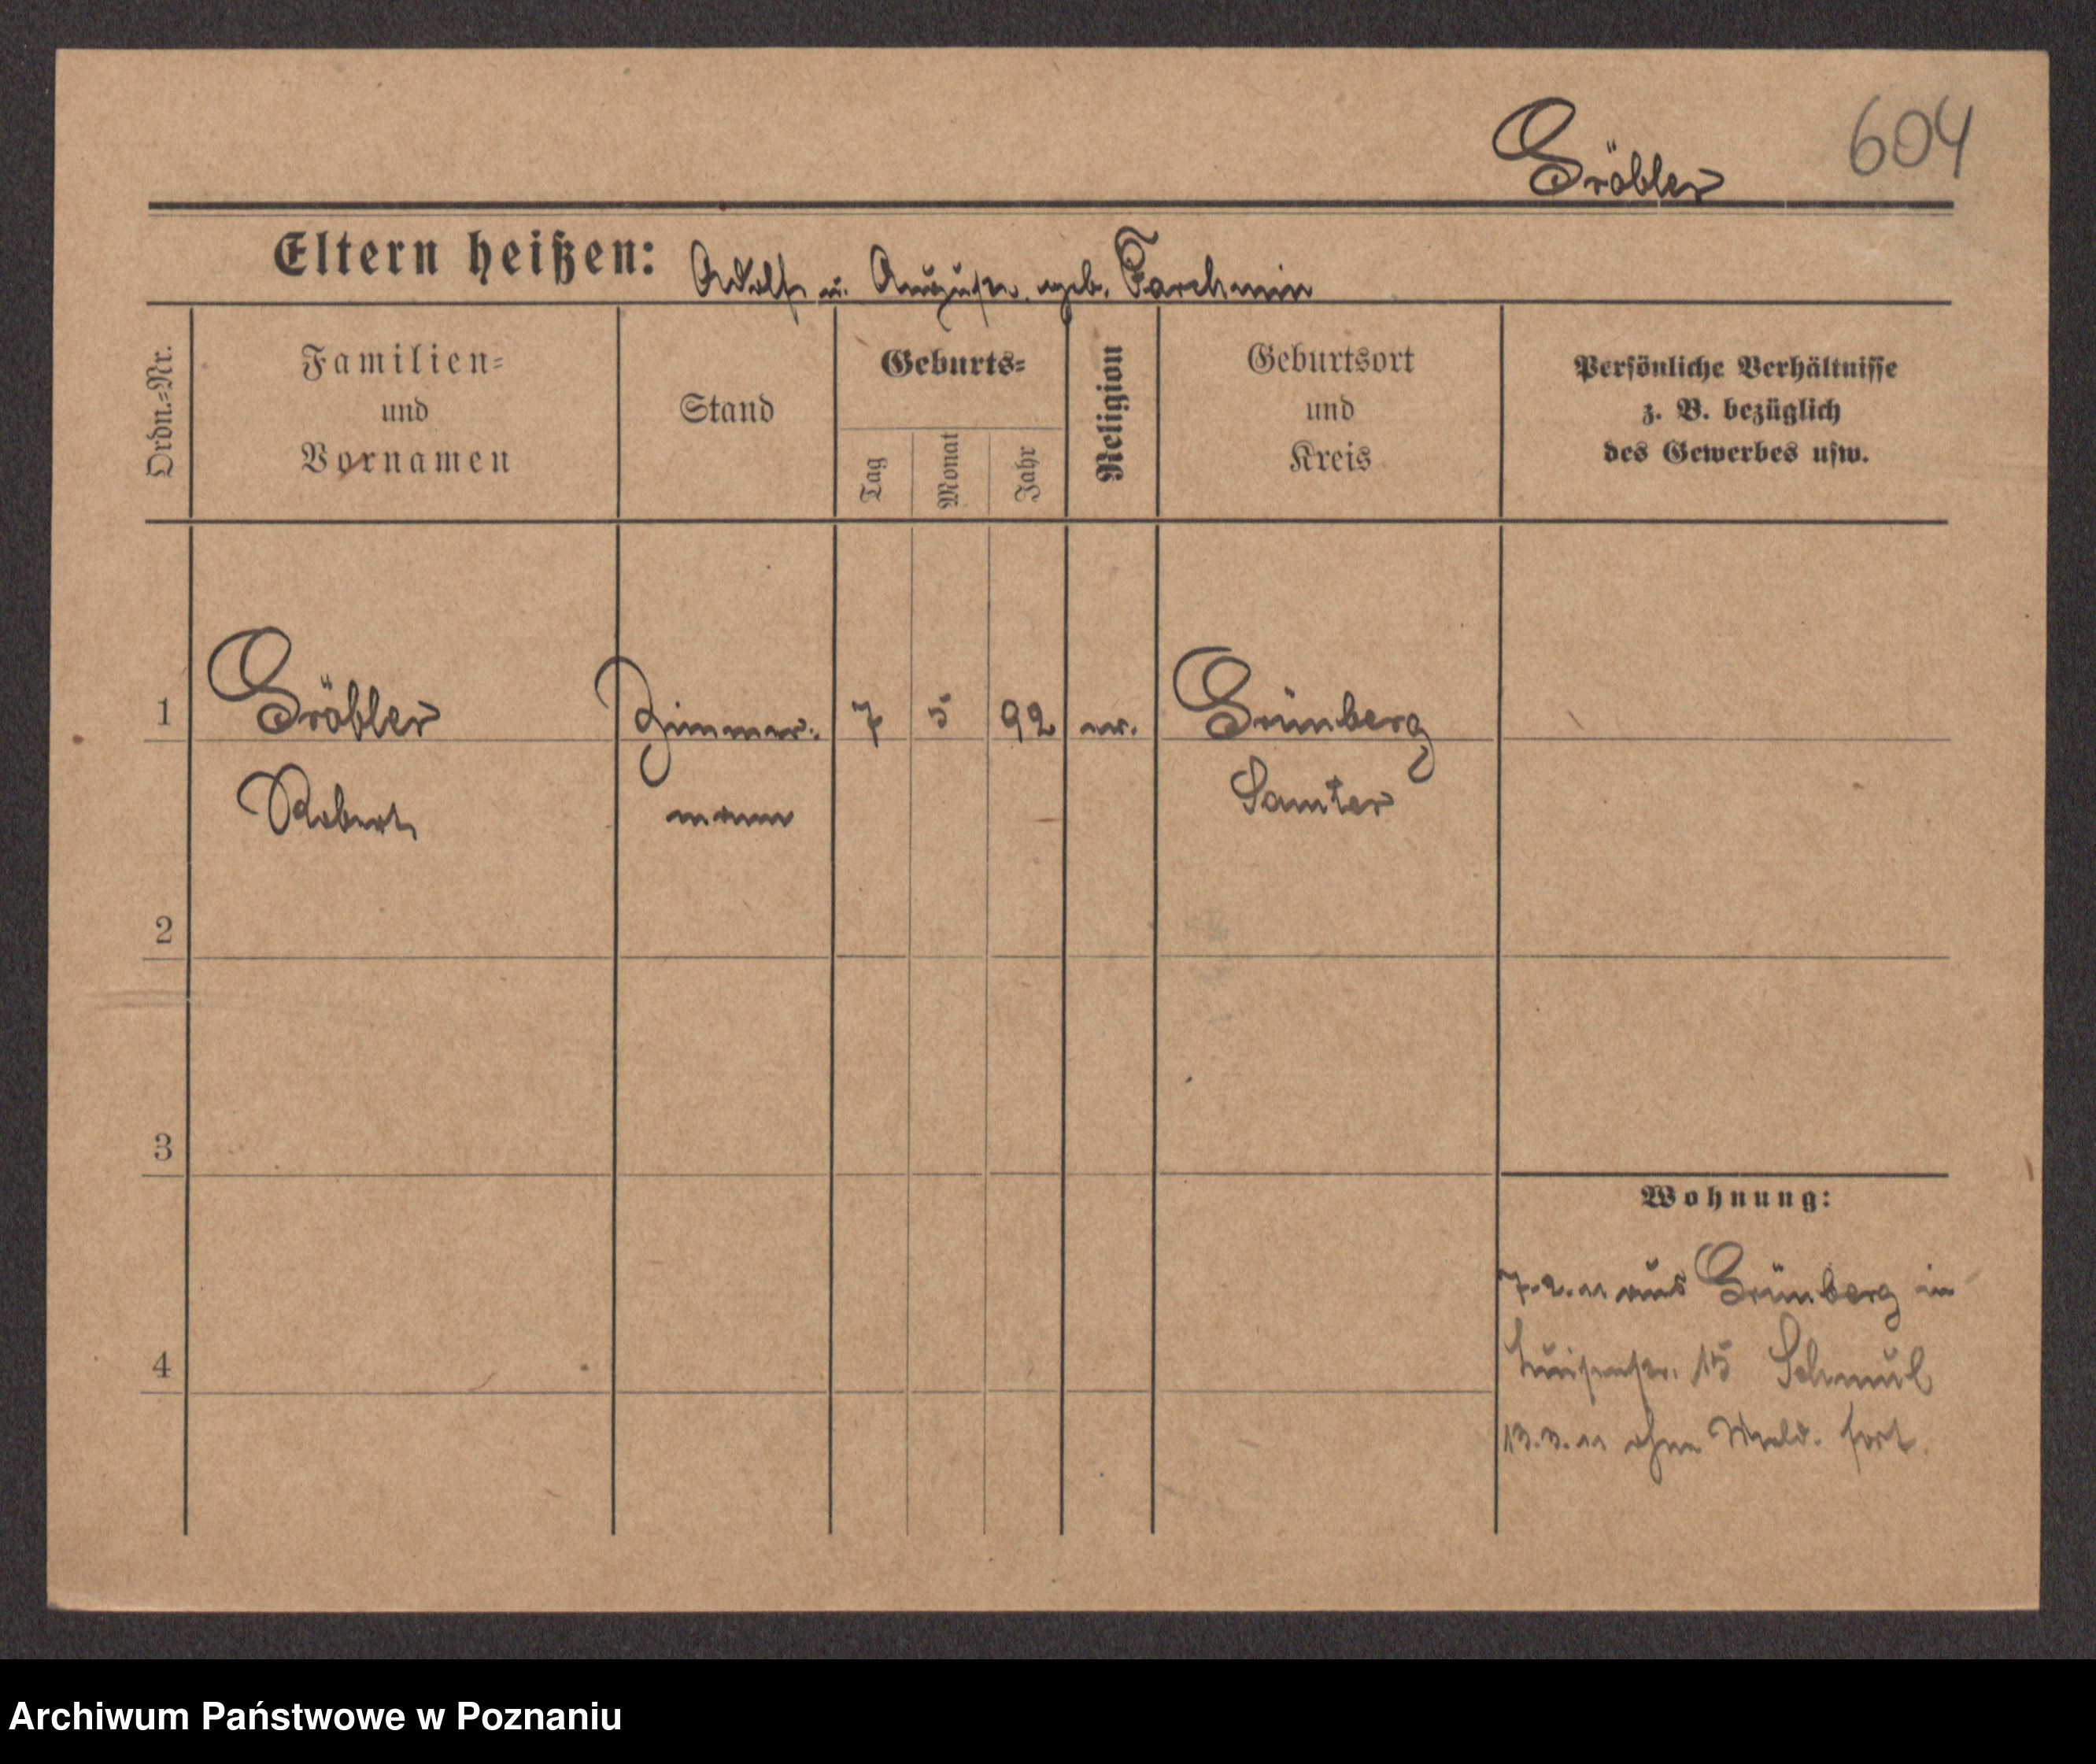 Gröbler 604
Eltern heißen: Adolf u. Auguste, geb. Tarchmin
Ordn.-Nr.
Familien-
und
Vornamen
Stand
Geburts-
Tag
Monat
Jahr
Religion
Geburtsort
und
Kreis
Persönliche Verhältnisse
z. B. bezüglich
des Gewerbes usw.
1 Gröbler Zimmer- 7 5 92 ev. Grünberg
Robert mann Samter
2
3
4
Wohnung:
7.2.11 aus Grünberg in
Luisenstr. 15 Schmul
13.3.11 ohne Meld. fort.
Archiwum Państwowe w Poznaniu